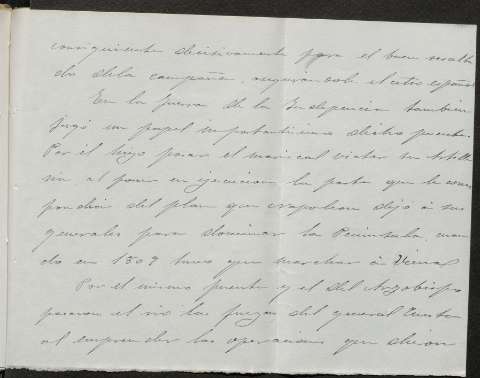 consiguiente decisivamente para el buen resulta
do dela campaña, asegurandole el cetro español
En la Guerra de la Independencia tambien
jugó un papel importantisimo dicho puente.
Por él hizo pasar el mariscal Victor su Artille
ria, al poner en ejecucion la parte que le corres
pondia del plan que Napoleon dejó á sus
generales para dominar la Peninsula, cuan
do en 1809 tuvo que marchar á
Por el mismo puente y el del Arzobispo
pasaron el rio las fuerzas del general Cuesta
al emprender las operaciones que dieron